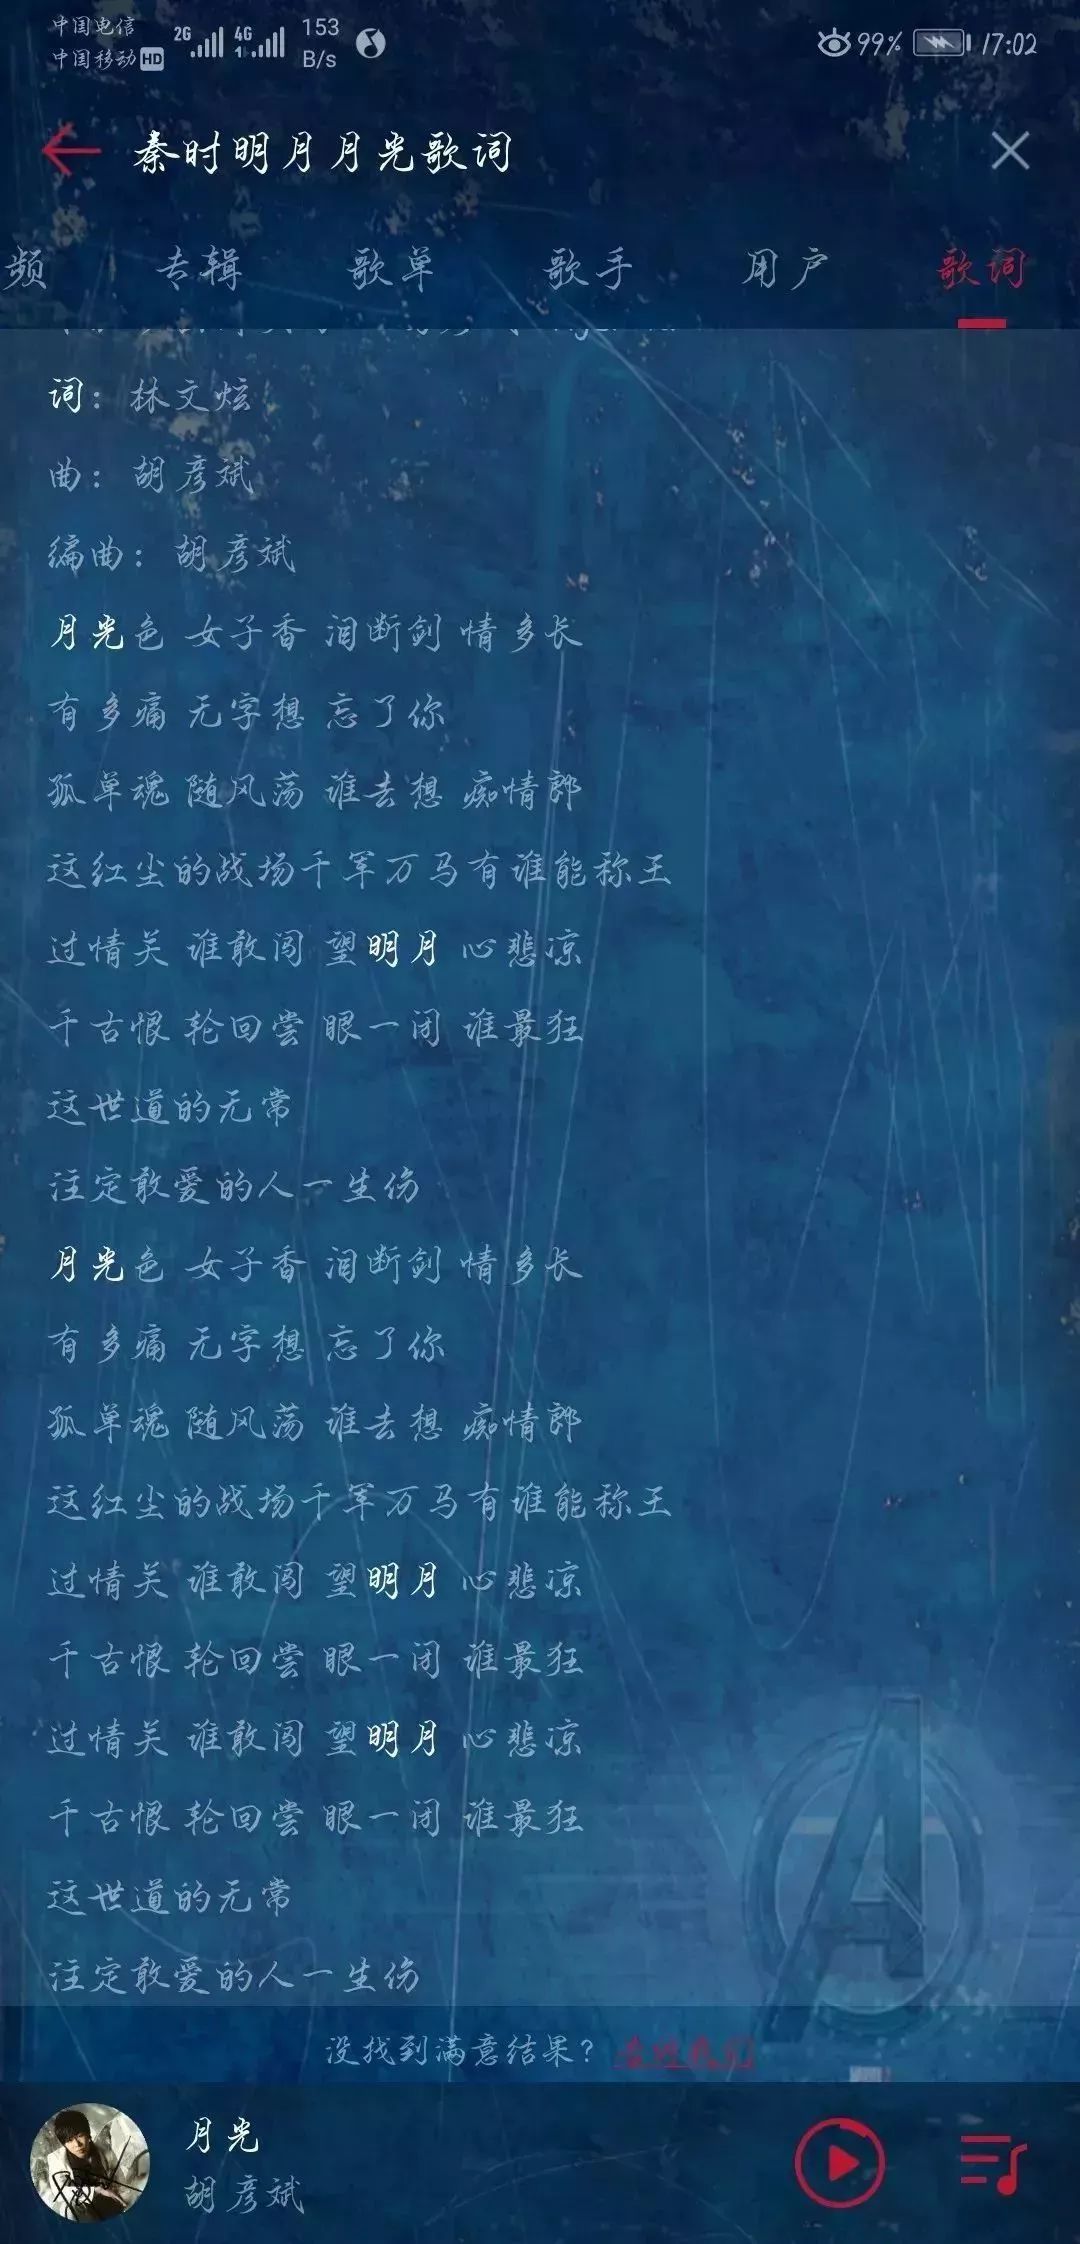 中国电信 2G 4G 153 99% 17:02
中国移动 HD 1 B/s
秦时明月月光歌词
频 专辑 歌单 歌手 用户 歌词
词：林文炫
曲：胡彦斌
编曲：胡彦斌
月光色 女子香 泪断剑 情多长
有多痛 无字想 忘了你
孤单魂 随风荡 谁去想 痴情郎
这红尘的战场千军万马有谁能称王
过情关 谁敢闯 望明月 心悲凉
千古恨 轮回尝 眼一闭 谁最狂
这世道的无常
注定敢爱的人一生伤
月光色 女子香 泪断剑 情多长
有多痛 无字想 忘了你
孤单魂 随风荡 谁去想 痴情郎
这红尘的战场千军万马有谁能称王
过情关 谁敢闯 望明月 心悲凉
千古恨 轮回尝 眼一闭 谁最狂
过情关 谁敢闯 望明月 心悲凉
千古恨 轮回尝 眼一闭 谁最狂
这世道的无常
注定敢爱的人一生伤
没找到满意结果？告诉我们
月光
胡彦斌